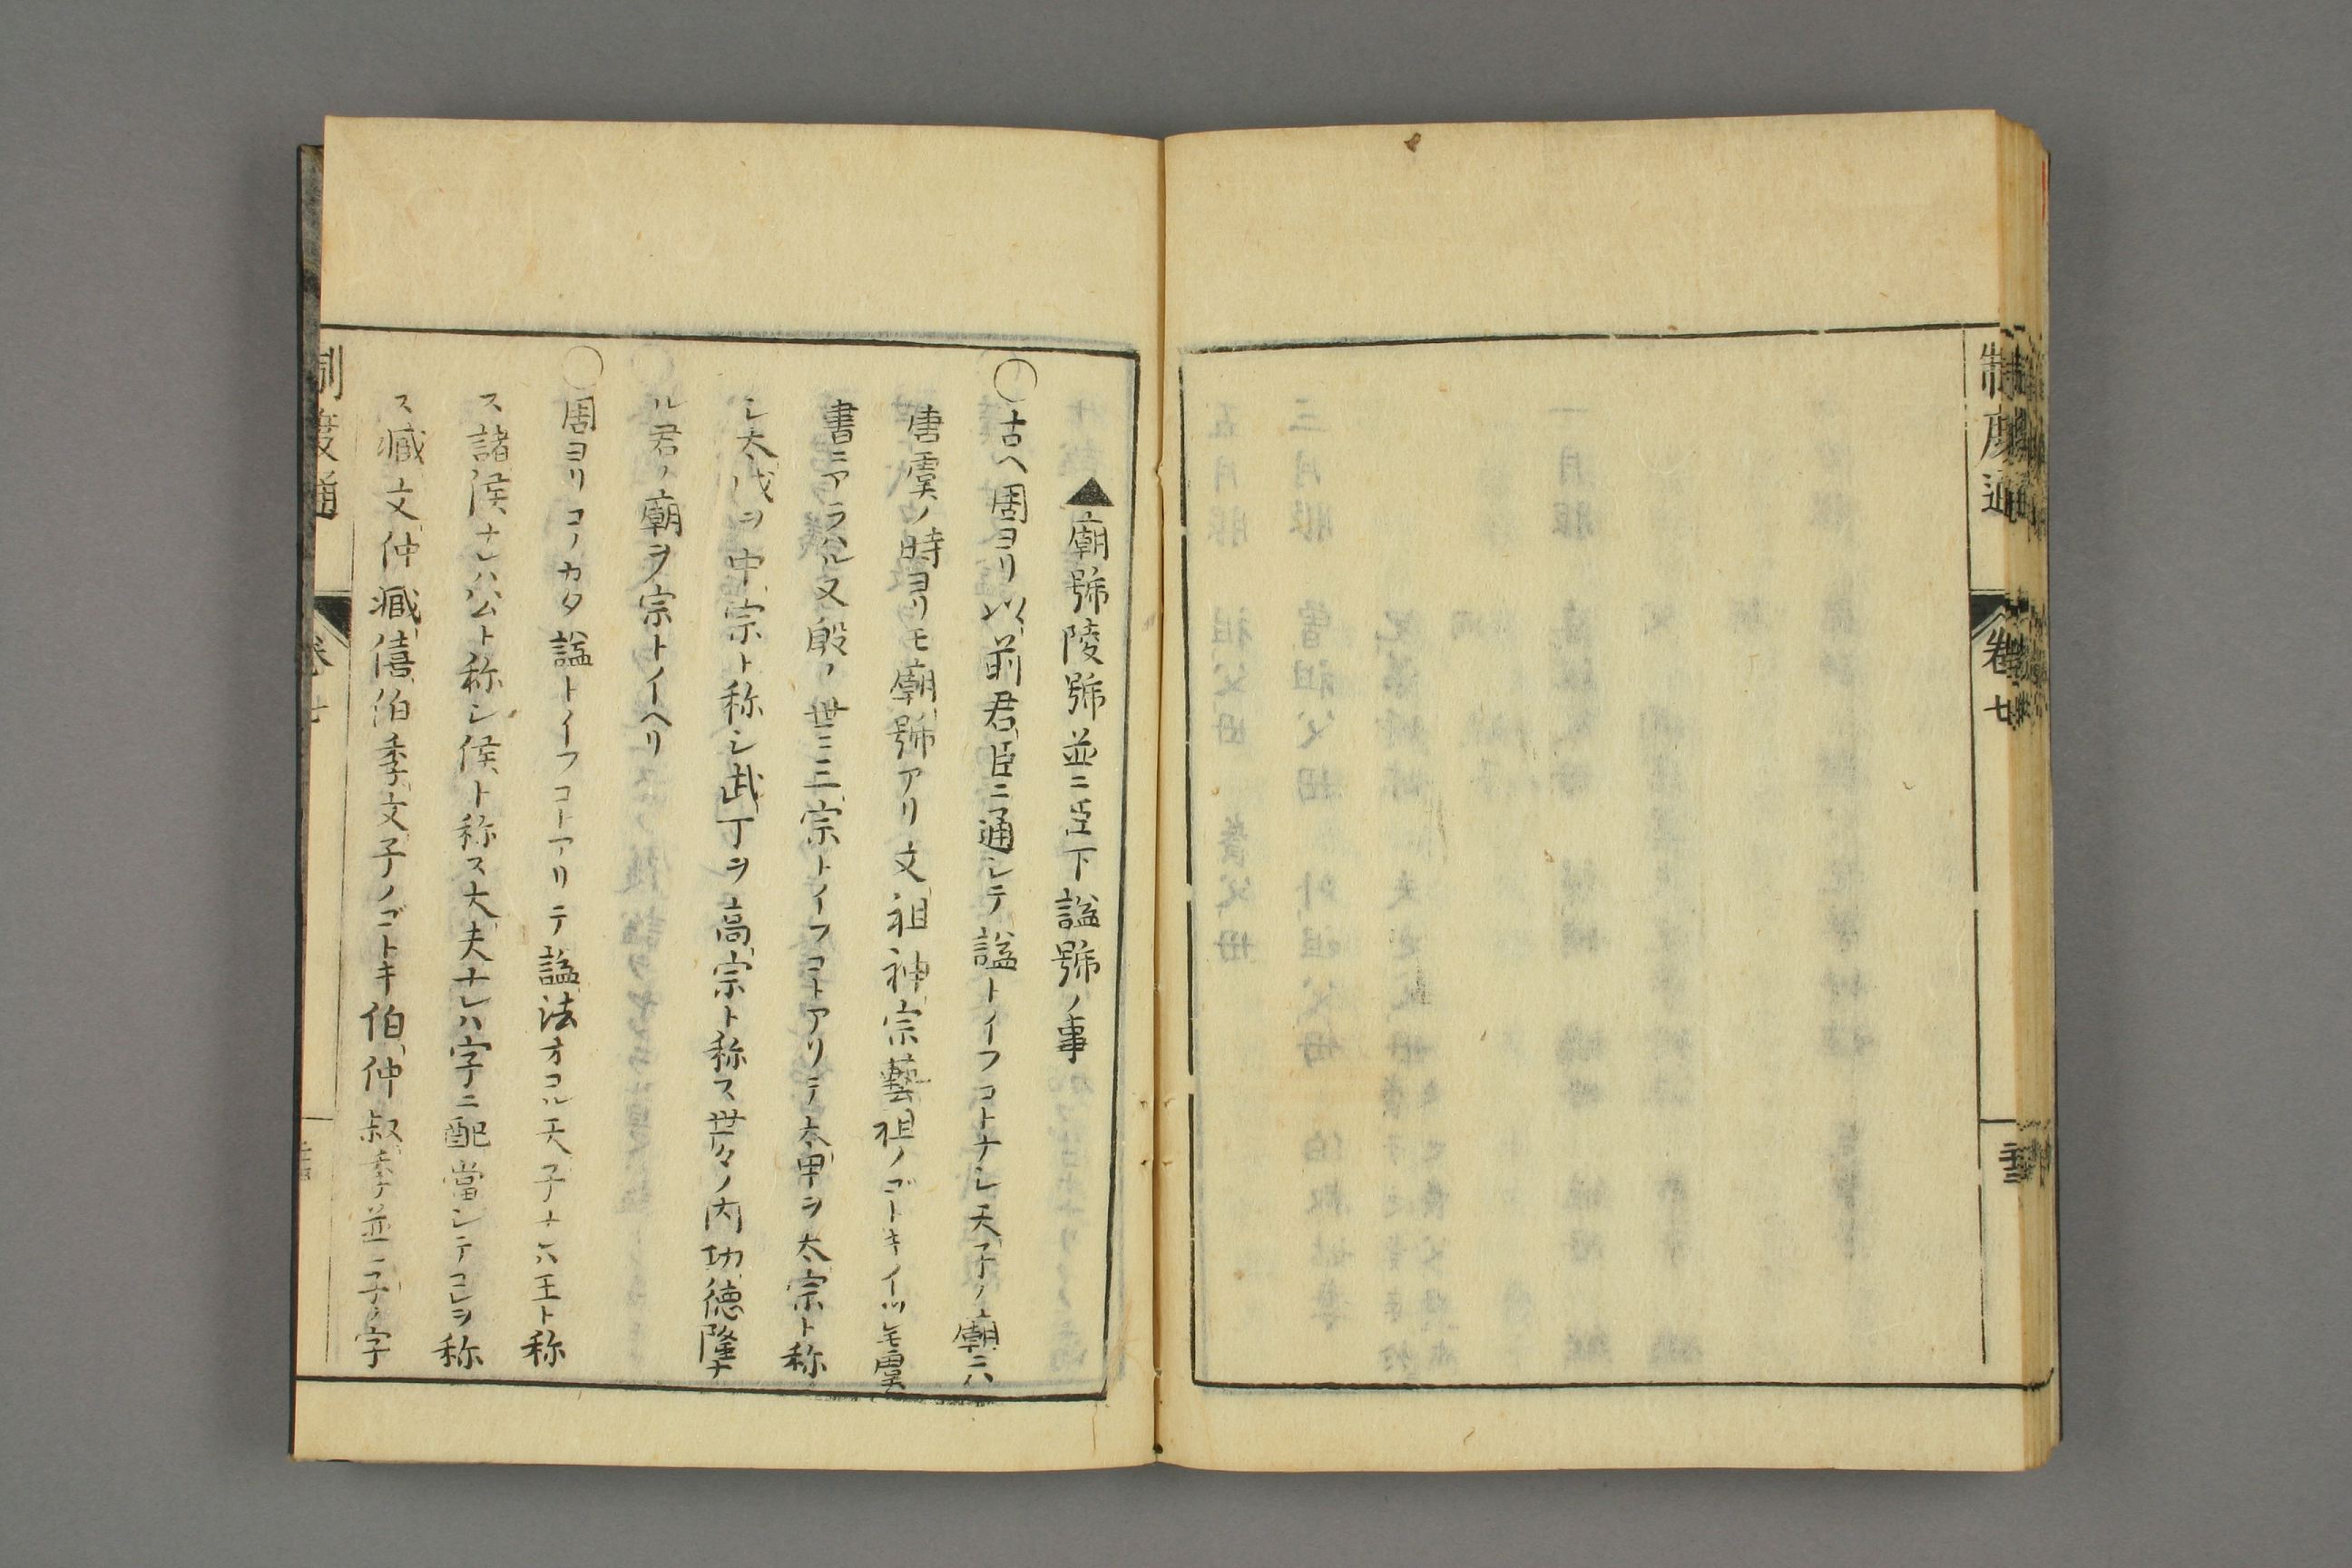 制度通
卷七
▲廟號陵號並ニ臣下謚號ノ事
○古ヘ周ヨリ以前君臣ニ通シテ謚トイフコトナシ天子ノ廟ニハ
唐虞ノ時ヨリモ廟號アリ文祖神宗藝祖ノゴトキイツレモ虞
書ニアラハル又殷ノ世ニ三宗トイフコトアリテ太甲ヲ太宗ト称
シ太戊ヲ中宗ト称シ武丁ヲ高宗ト称ス世々ノ内功徳隆ナ
ル君ノ廟ヲ宗トイヘリ
○周ヨリコノカタ謚トイフコトアリテ謚法オコル天子ナレハ王ト称
ス諸侯ナレハ公ト称シ侯ト称ス大夫ナレハ字ニ配當シテコレヲ称
ス臧文仲臧僖伯季文子ノゴトキ伯仲叔季並ニ子ノ字
制度通